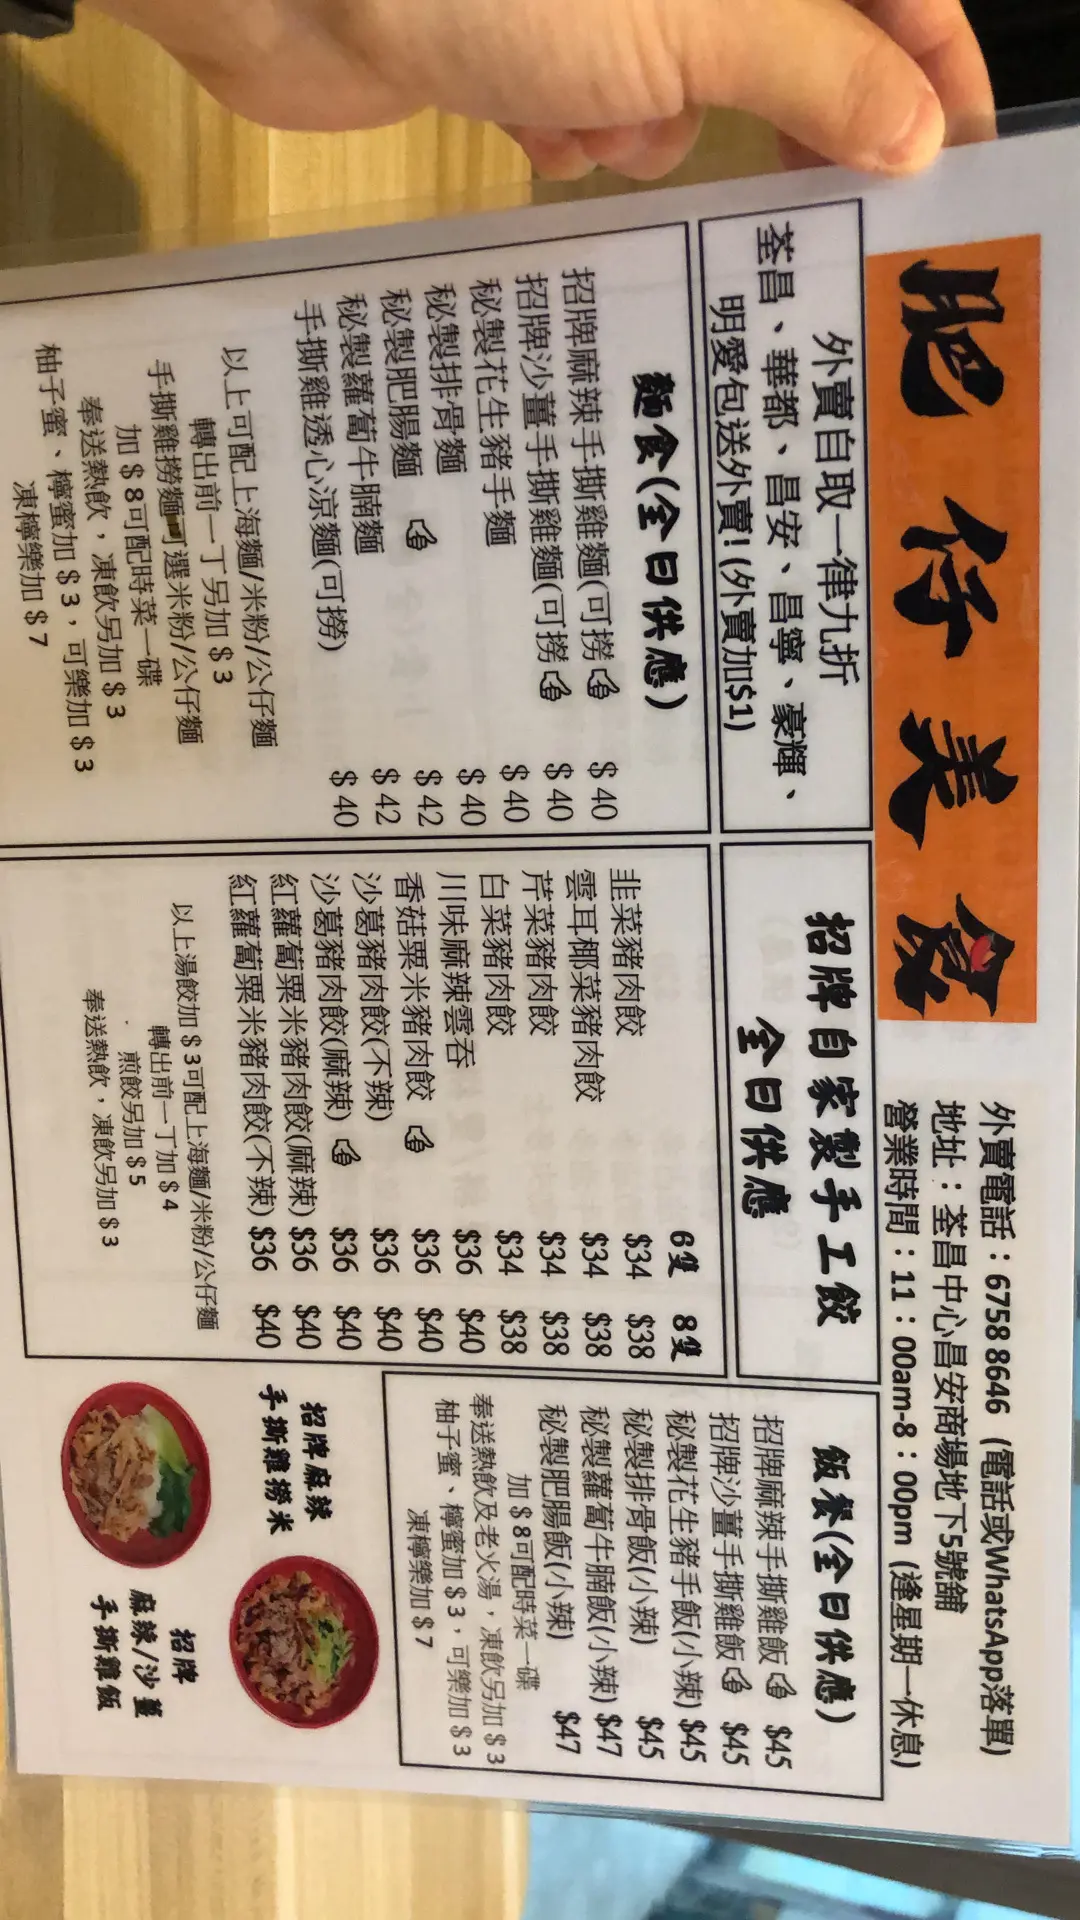 肥仔美食
外賣電話：6758 8646 (電話或WhatsApp落單)
地址：荃昌中心昌安商場地下5號舖
營業時間：11：00am-8：00pm (逢星期一休息)
外賣自取一律九折
荃昌、華都、昌安、昌寧、豪輝、
明愛包送外賣! (外賣加$1)
麵食(全日供應)
招牌麻辣手撕雞麵(可撈) $40
招牌沙薑手撕雞麵(可撈) $40
秘製花生豬手麵 $40
秘製排骨麵 $40
秘製肥腸麵 $42
秘製蘿蔔牛腩麵 $42
手撕雞透心涼麵(可撈) $40
以上可配上海麵/米粉/公仔麵
轉出前一丁另加$3
手撕雞撈麵可選米粉/公仔麵
加$8可配時菜一碟
奉送熱飲，凍飲另加$3
柚子蜜、檸蜜加$3，可樂加$3
凍檸樂加$7
招牌自家製手工餃
全日供應
6隻 8隻
韭菜豬肉餃 $34 $38
雲耳椰菜豬肉餃 $34 $38
芹菜豬肉餃 $34 $38
白菜豬肉餃 $34 $38
川味麻辣雲吞 $36 $40
香菇粟米豬肉餃 $36 $40
沙葛豬肉餃(不辣) $36 $40
沙葛豬肉餃(麻辣) $36 $40
紅蘿蔔粟米豬肉餃(麻辣) $36 $40
紅蘿蔔粟米豬肉餃(不辣) $36 $40
以上湯餃加$3可配上海麵/米粉/公仔麵
轉出前一丁加$4
煎餃另加$5
奉送熱飲，凍飲另加$3
飯餐(全日供應)
招牌麻辣手撕雞飯 $45
招牌沙薑手撕雞飯 $45
秘製花生豬手飯(小辣) $45
秘製排骨飯(小辣) $45
秘製蘿蔔牛腩飯(小辣) $47
秘製肥腸飯(小辣) $47
加$8可配時菜一碟
奉送熱飲及老火湯，凍飲另加$3
柚子蜜、檸蜜加$3，可樂加$3
凍檸樂加$7
招牌麻辣
手撕雞撈米
招牌
麻辣/沙薑
手撕雞飯